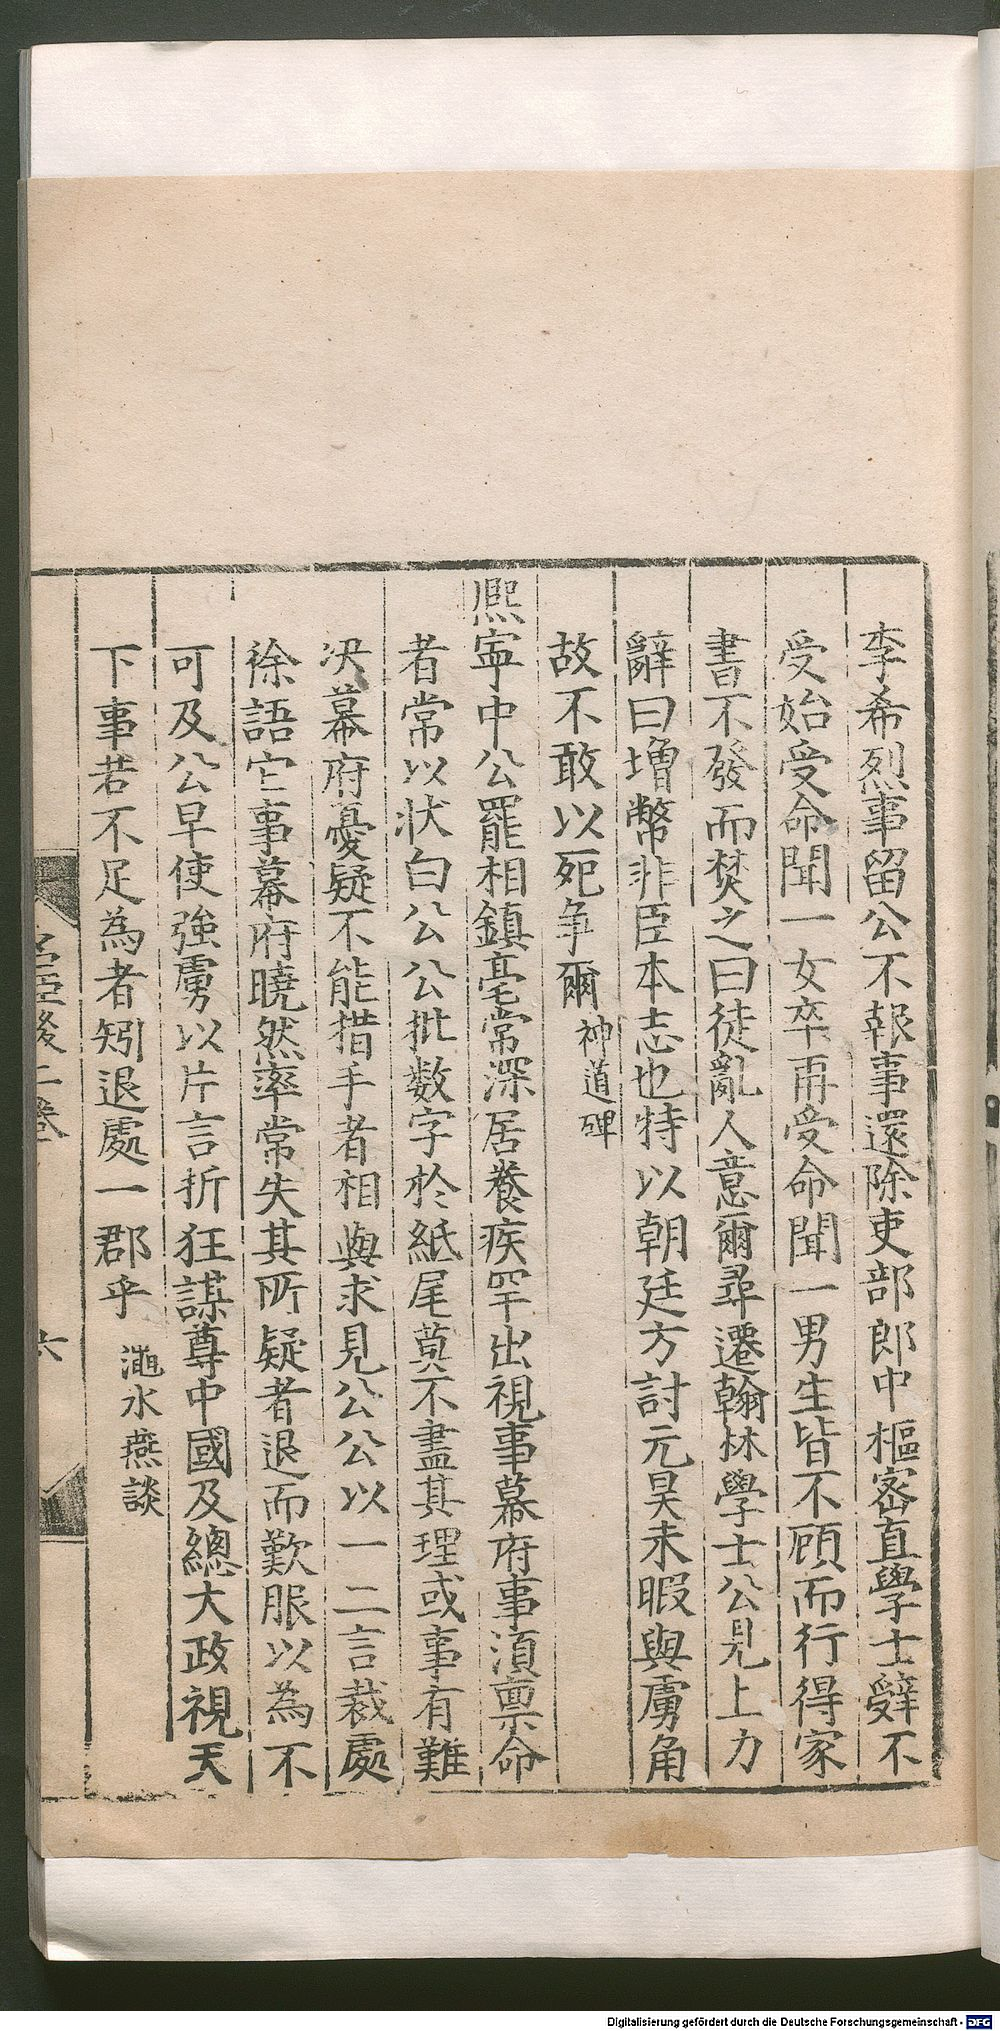 李希烈事留公不報事還除吏部郎中樞密直學士辤不
受始受命聞一女卒再受命聞一男生皆不顧而行得家
書不發而焚之曰徒亂人意爾尋遷翰林學士公見上力
辭曰增幣非臣本志也特以朝廷方討元昊未暇與虜角
故不敢以死爭爾神道碑
熈寧中公罷相鎮亳常深居養疾罕出視事幕府事湏禀命
者常以状白公公批数字於紙尾莫不盡其理或事有難
决幕府憂疑不能措手者相與求見公公以一二言裁處
徐語它事幕府曉然率常失其所疑者退而歎服以為不
可及公早使強虜以片言折狂謀尊中國及緫大政視天
下事若不足為者矧退處一郡乎澠水燕談
名臣後二卷
六
Digitalisierung gefördert durch die Deutsche Forschungsgemeinschaft - DFG